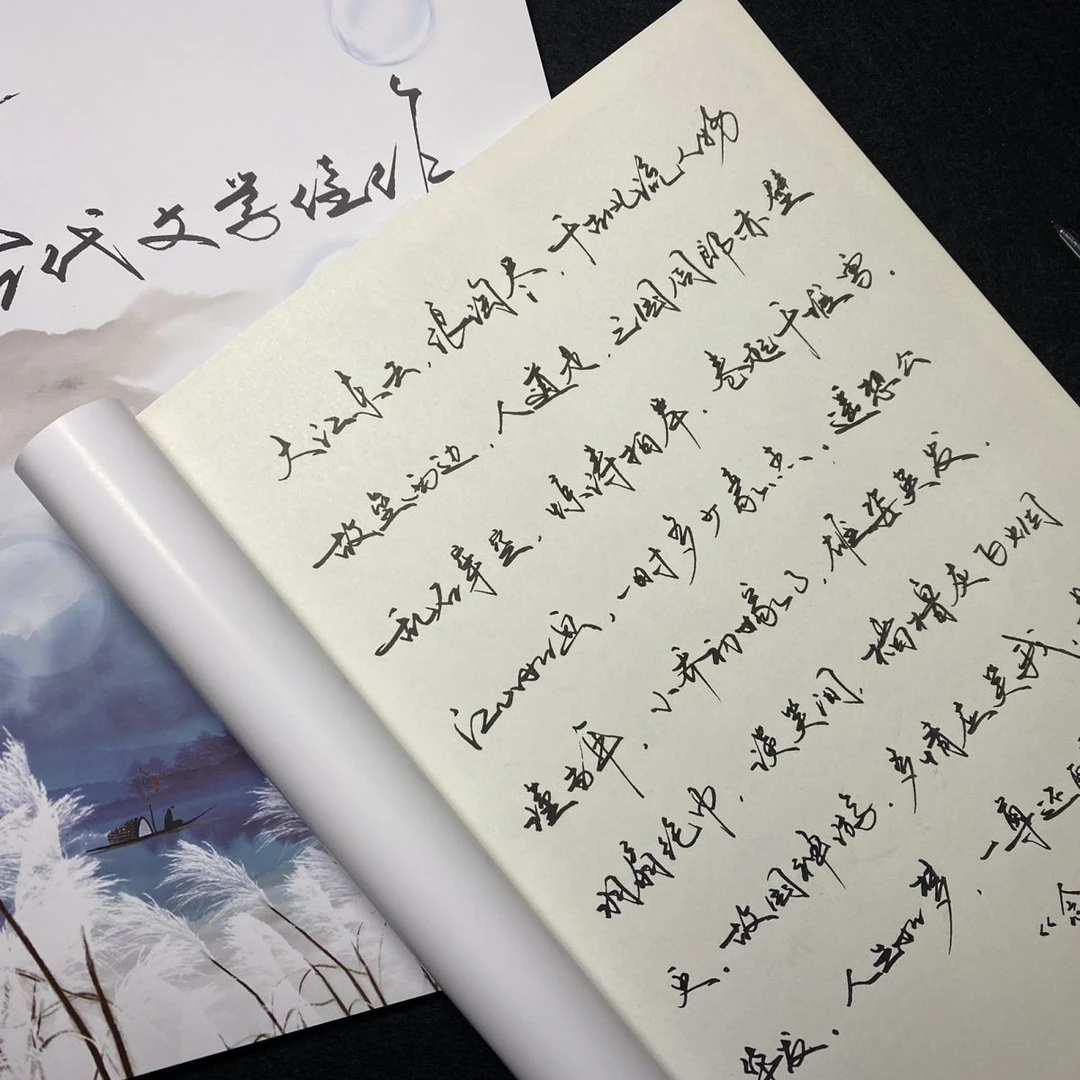 古代文学佳作
大江东去，浪淘尽，千古风流人物
故垒西边，人道是，三国周郎赤壁
乱石穿空，惊涛拍岸，卷起千堆雪。
江山如画，一时多少豪杰..遥想公
瑾当年，小乔初嫁了，雄姿英发。
羽扇纶巾，谈笑间，樯橹灰飞烟
灭，故国神游，多情应笑我，
华发。人生如梦，一尊还
《念